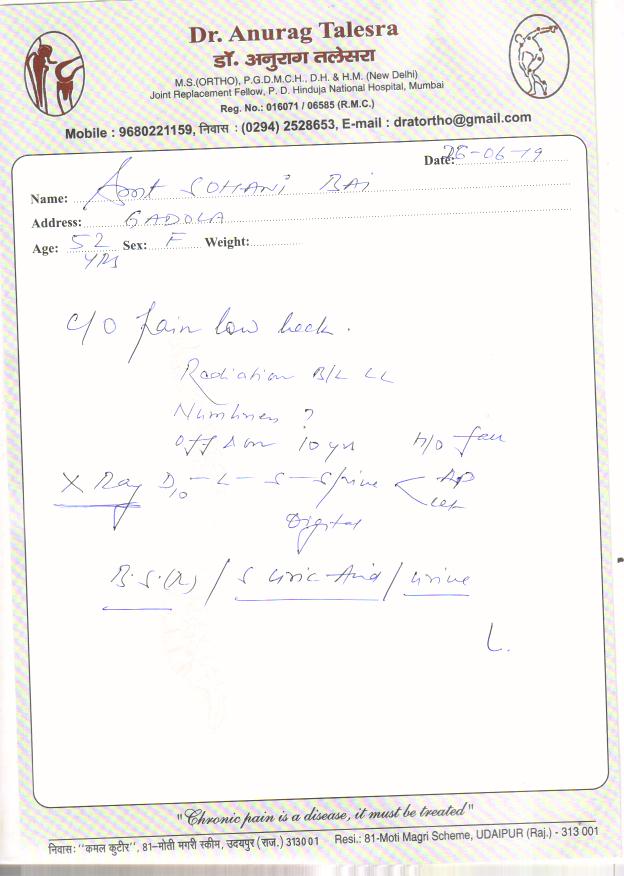 Dr. Anurag Talesra
डॉ. अनुराग तलेसरा
M.S.(ORTHO), P.G.D.M.C.H., D.H. & H.M. (New Delhi)
Joint Replacement Fellow, P. D. Hinduja National Hospital, Mumbai
Reg. No.: 016071 / 06585 (R.M.C.)
Mobile : 9680221159, निवास : (0294) 2528653, E-mail : dratortho@gmail.com
Date: 26-06-19
Name: Smt SOHANI BAI
Address: GADOLA
Age: 52 yrs Sex: F Weight:
C/O Pain low back.
Radiation B/L LL
Numbness ?
off & on 10 yrs H/O fall
X Ray D10-L-S-Spine AP
Lat
Digital
B.S.(R) / S Uric Acid / Urine
"Chronic pain is a disease, it must be treated"
निवास: "कमल कुटीर", 81-मोती मगरी स्कीम, उदयपुर (राज.) 313001 Resi.: 81-Moti Magri Scheme, UDAIPUR (Raj.) - 313 001